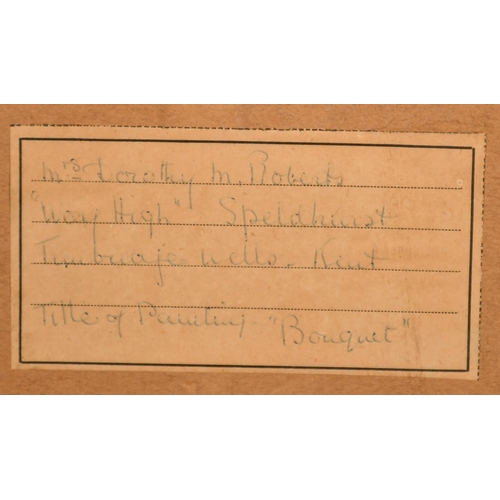 Mrs Dorothy M. Roberts
"Way High" Speldhurst
Tunbridge Wells. Kent
Title of Painting "Bouquet"